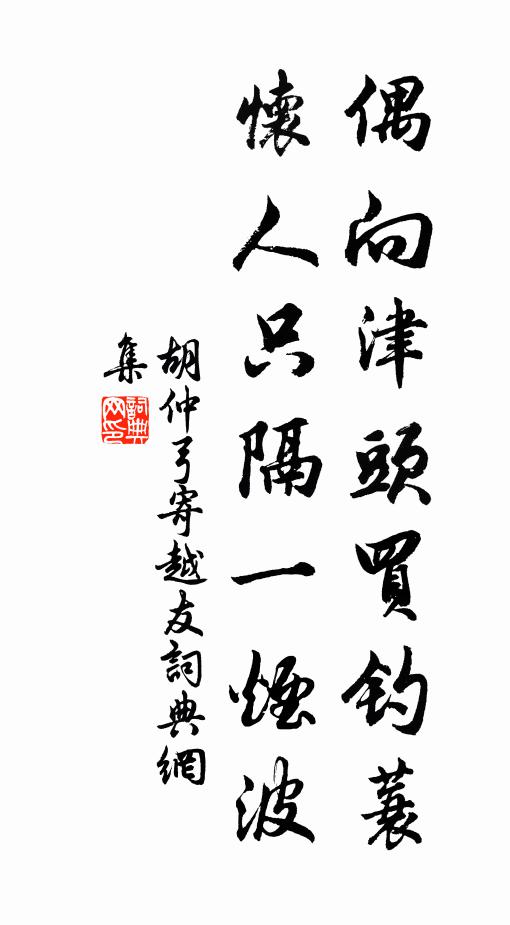 偶向津頭買釣蓑
懷人只隔一煙波
胡仲弓寄越友詞典網
集
詞典
网印